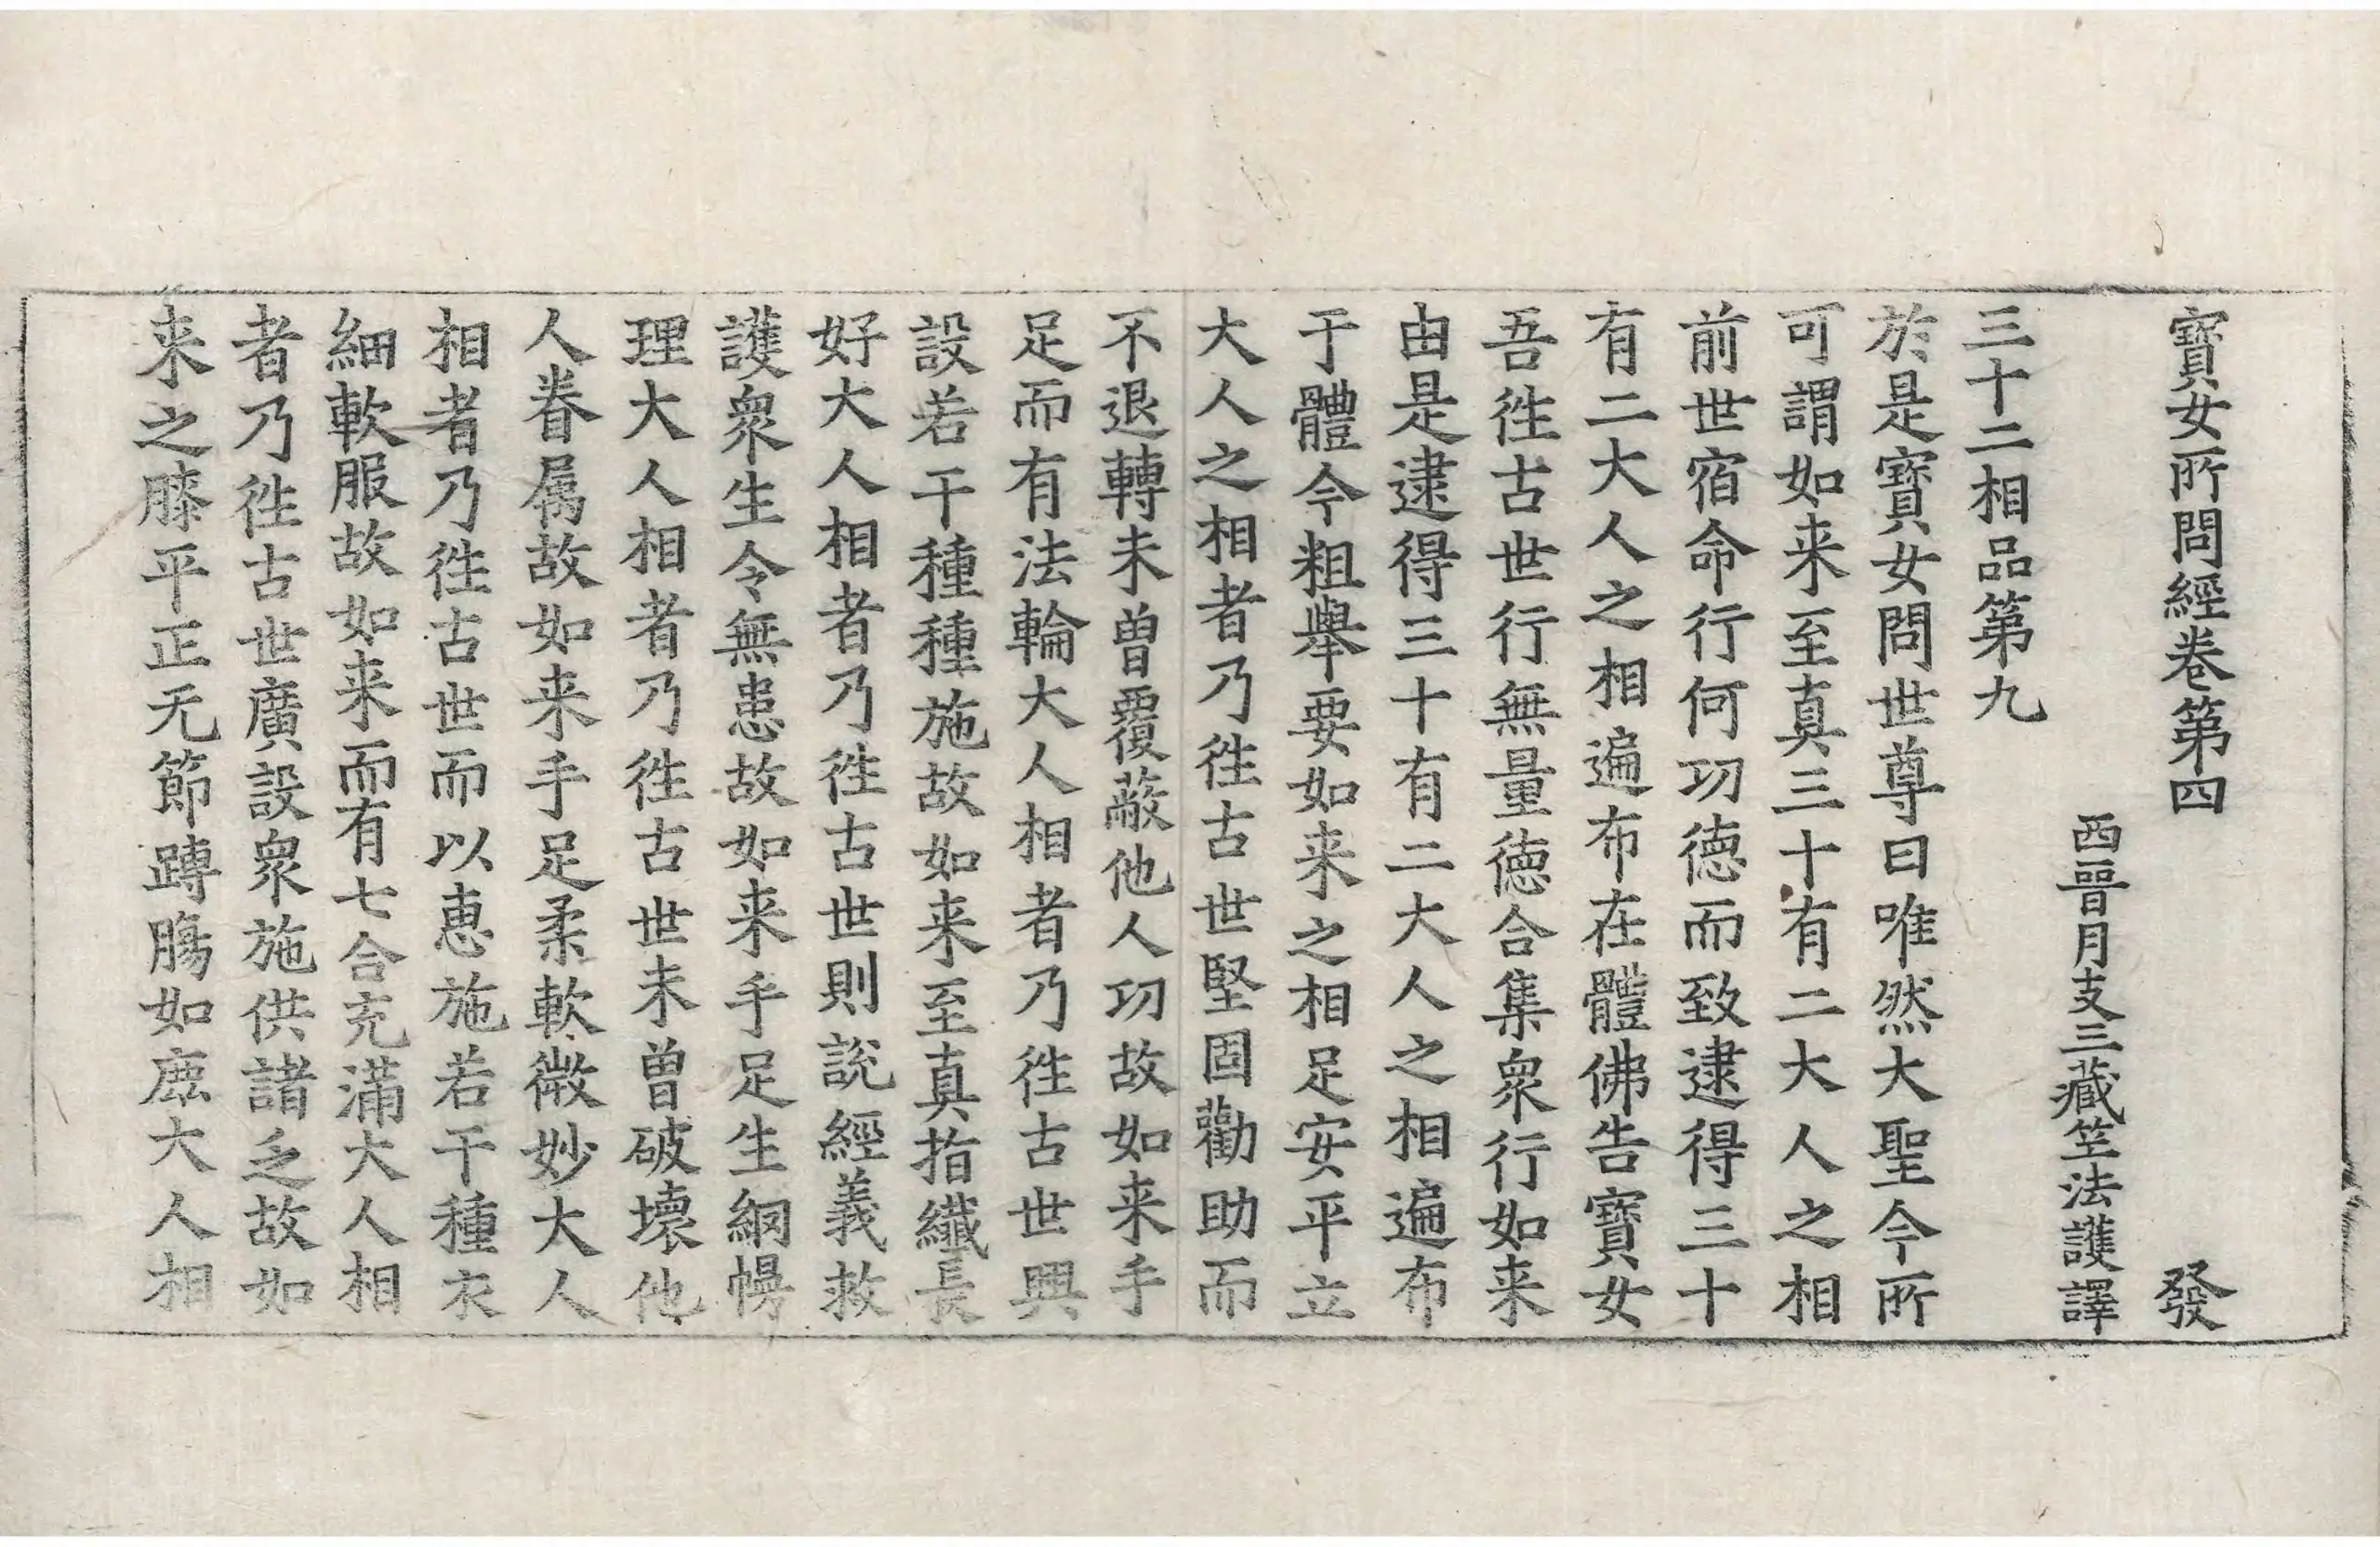 寶女所問經卷第四 發
西晉月支三藏竺法護譯
三十二相品第九
於是寶女問世尊曰唯然大聖今所
可謂如来至真三十有二大人之相
前世宿命行何功德而致逮得三十
有二大人之相遍布在體佛告寶女
吾徃古世行無量德合集衆行如来
由是逮得三十有二大人之相遍布
于體今粗舉要如来之相足安平立
大人之相者乃徃古世堅固勸助而
不退轉未曽覆蔽他人功故如来手
足而有法輪大人相者乃徃古世興
設若干種種施故如来至真指纖長
好大人相者乃徃古世則說經義救
護衆生令無患故如来手足生網幔
理大人相者乃徃古世未曽破壞他
人眷属故如来手足柔軟微妙大人
相者乃徃古世而以惠施若干種衣
細軟服故如来而有七合充滿大人相
者乃徃古世廣設衆施供諸乏故如
来之膝平正无節踹腸如鹿大人相